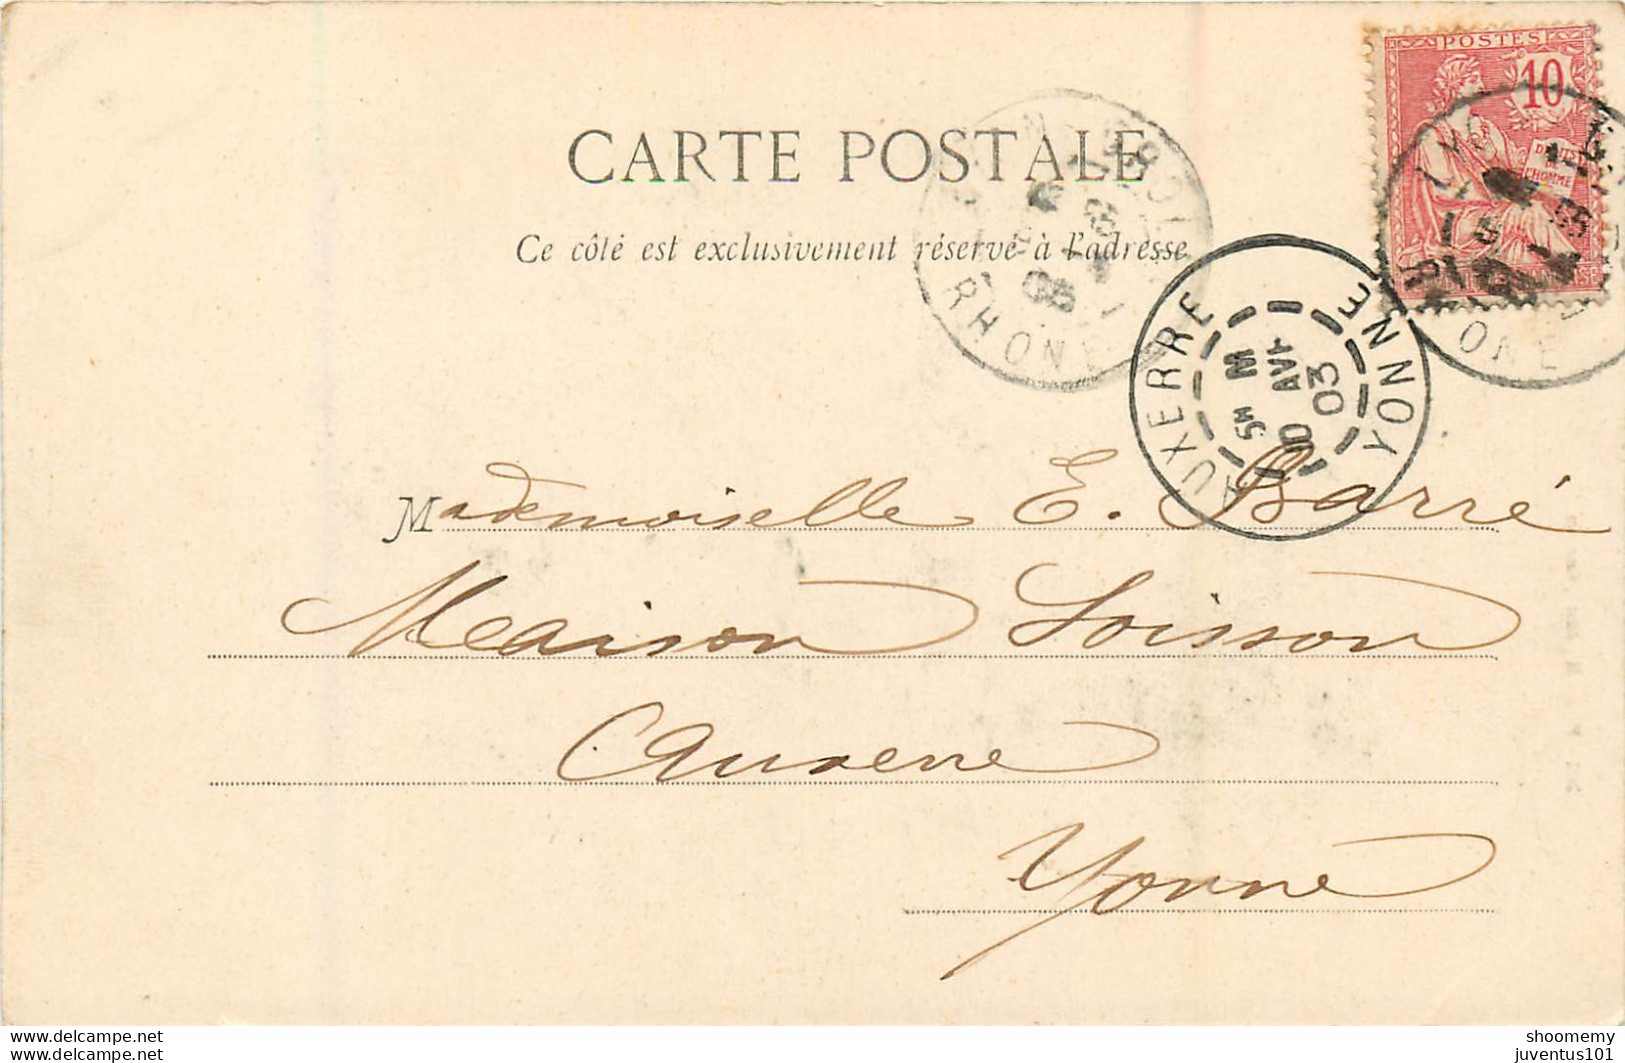 POSTES
10
DROITS
DE
L'HOMME
CARTE POSTALE
Ce côté est exclusivement réservé à l'adresse
RHONE
AUXERRE
YONNE
5M M
AVR
03
Mademoiselle E. Barré
Maison Soisson
Auxerre
Yonne
www.delcampe.net
www.delcampe.net
shoomemy
juventus101